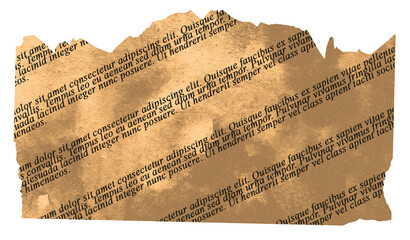 sit amet consectetur adipiscing elit. Quisque
tempus leo eu aenean sed diam urna
lacinia integer nunc posuere. Ut hendrerit
dolor sit amet consectetur adipiscing elit. Quisque faucibus ex sapien vitae
tempus leo eu aenean sed diam urna tempor. Pulvinar vivamus
lacinia integer nunc posuere. Ut hendrerit semper vel class aptent taciti
himenaeos.
dolor sit amet consectetur adipiscing elit. Quisque faucibus ex sapien vitae
tempus leo eu aenean sed diam urna tempor. Pulvinar vivamus
lacinia integer nunc posuere. Ut hendrerit semper vel class aptent
himenaeos.
dolor sit amet consectetur adipiscing elit. Quisque faucibus ex
tempus leo eu aenean sed diam urna tempor. Pulvinar
integer nunc posuere. Ut hendrerit semper vel class